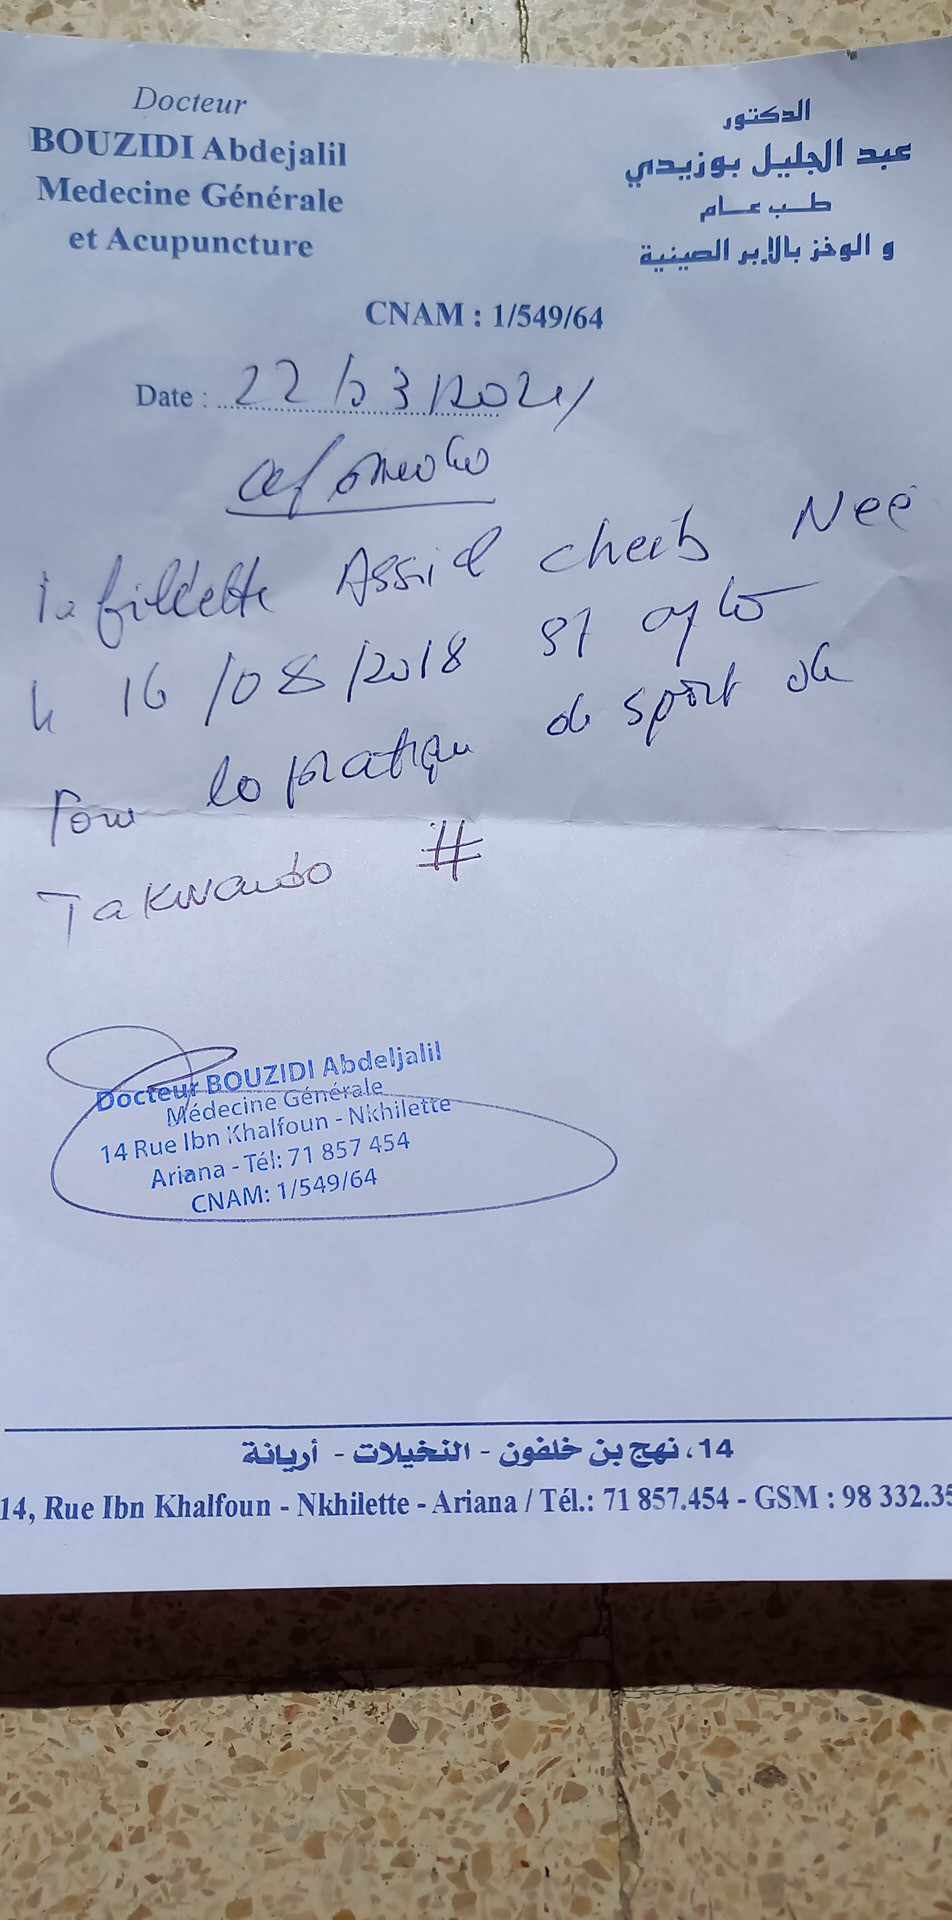 Docteur
BOUZIDI Abdejalil
Medecine Générale
et Acupuncture
الدكتور
عبد الجليل بوزيدي
طب عام
و الوخز بالإبر الصينية
CNAM : 1/549/64
Date : 22/03/2024
la fillette Assil cheib Neé
le 16/08/2018 est apte
Pour la pratique de sport de
Takwando #
Docteur BOUZIDI Abdeljalil
Médecine Générale
14 Rue Ibn Khalfoun - Nkhilette
Ariana - Tél: 71 857 454
CNAM: 1/549/64
14، نهج بن خلفون - النخيلات - أريانة
14, Rue Ibn Khalfoun - Nkhilette - Ariana / Tél.: 71 857.454 - GSM : 98 332.35